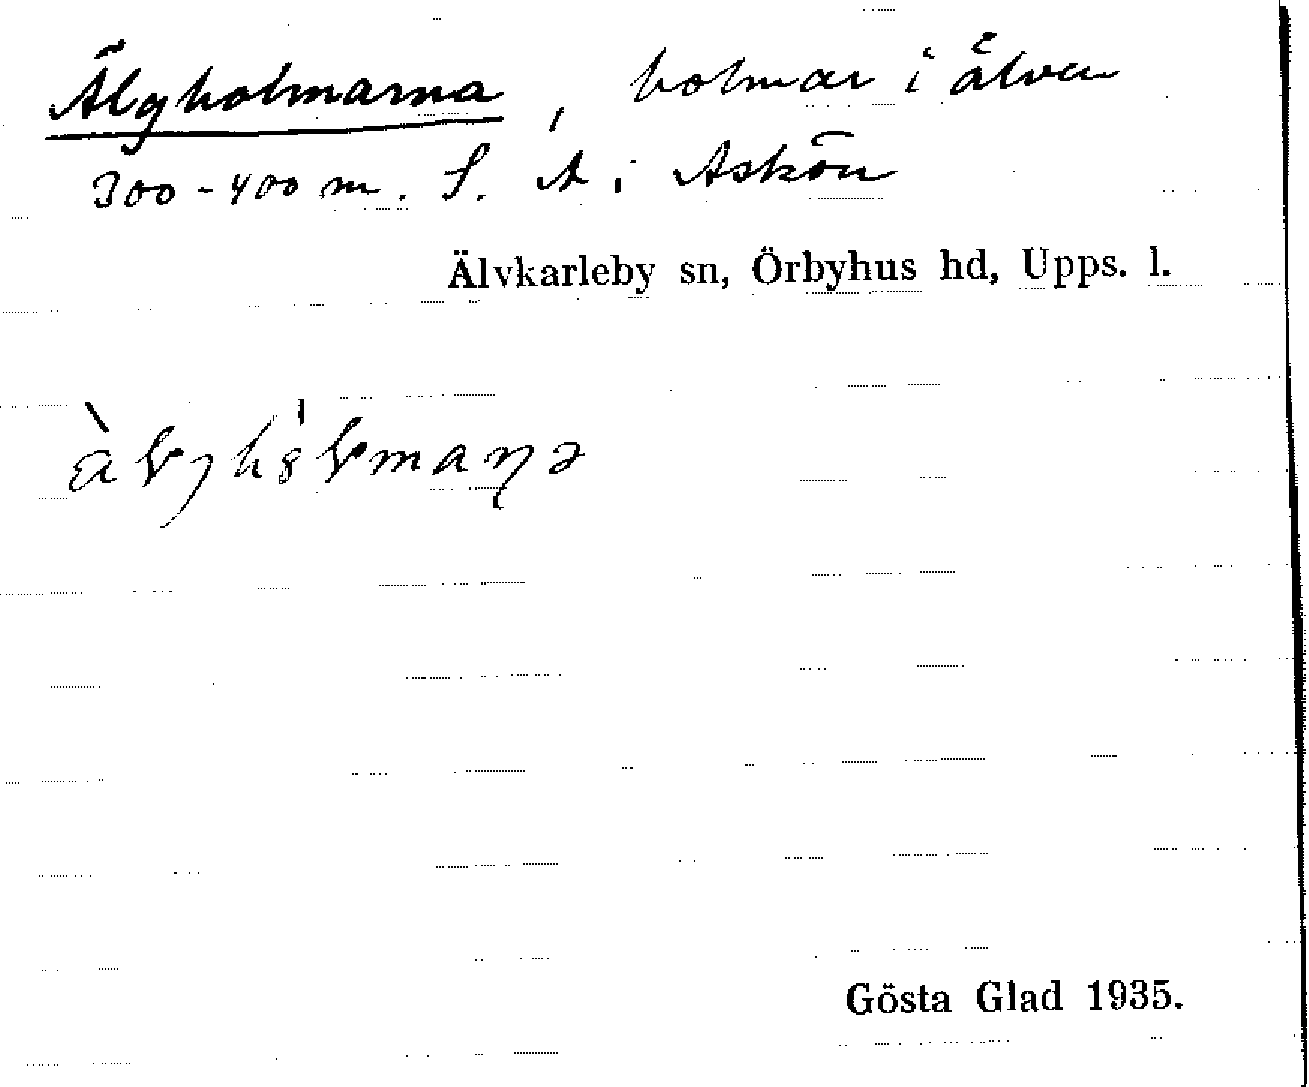 Älgholmarna, holmar i älven
300-400 m. S. A i Askön
Älvkarleby sn, Örbyhus hd, Upps. l.
Gösta Glad 1935.